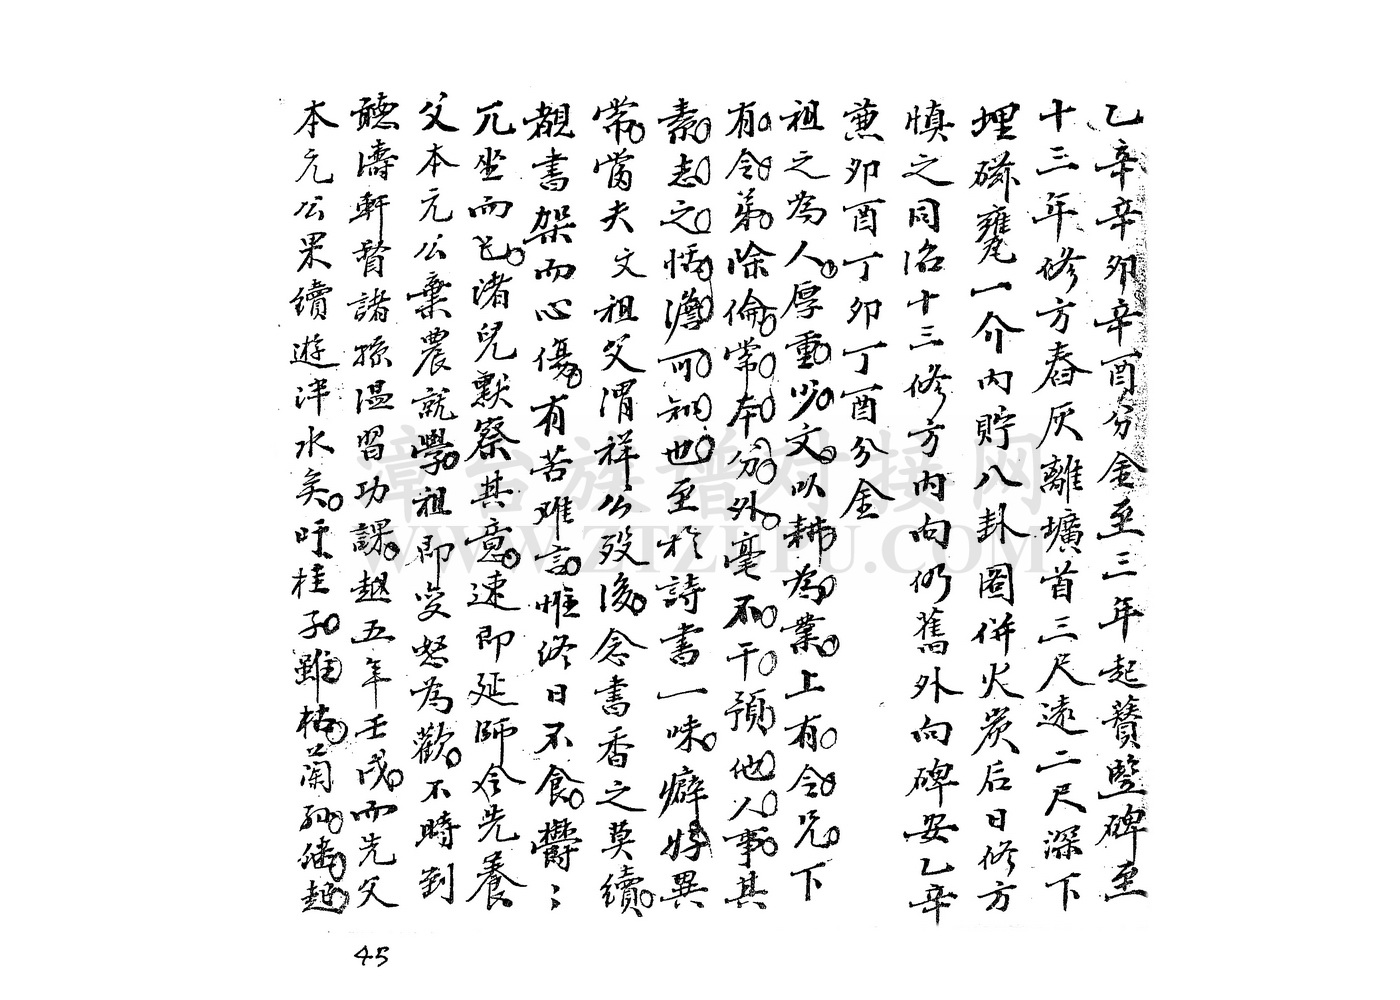 乙辛辛卯辛酉分金至三年起贊豎碑至
十三年修方舂灰離壙首三尺遠二尺深下
埋磁甕一介内貯八卦圖併火炭后日修方
慎之同治十三修方内向仍舊外向碑安乙辛
兼卯酉丁卯丁酉分金
祖之為人厚重少文以耕為業上有令兄下
有令弟除倫常本分外毫不干預他人事其
素志之恬澹可知也至於詩書一味癖好異
常當夫文祖父渭祥公歿後念書香之莫續
覩書架而心傷有苦难言惟終日不食欝〻
兀坐而已渚兒默察其意速即延師令先養
父本元公棄農就學祖即变愁為歡不時到
聽濤軒督諸孫温習功課越五年壬戌而先父
本元公果續遊泮水矣吁桂子雖枯蘭孫繼起
45
漳台族谱对接网
WWW.ZTZUPU.COM